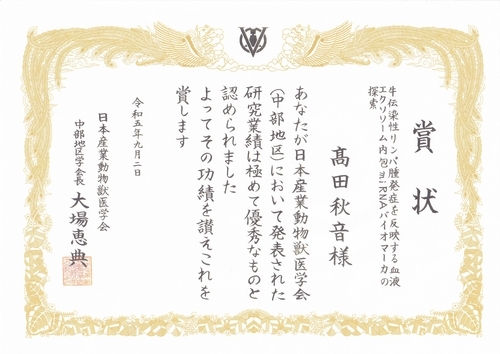 賞状
牛伝染性リンパ腫発症を反映する血液
エクソソーム内包miRNAバイオマーカの
探索
髙田秋音様
あなたが日本産業動物獣医学会
(中部地区)において発表された
研究業績は極めて優秀なものと
認められました
よってその功績を讃えこれを
賞します
令和五年九月二日
日本産業動物獣医学会
中部地区学会長 大場恵典